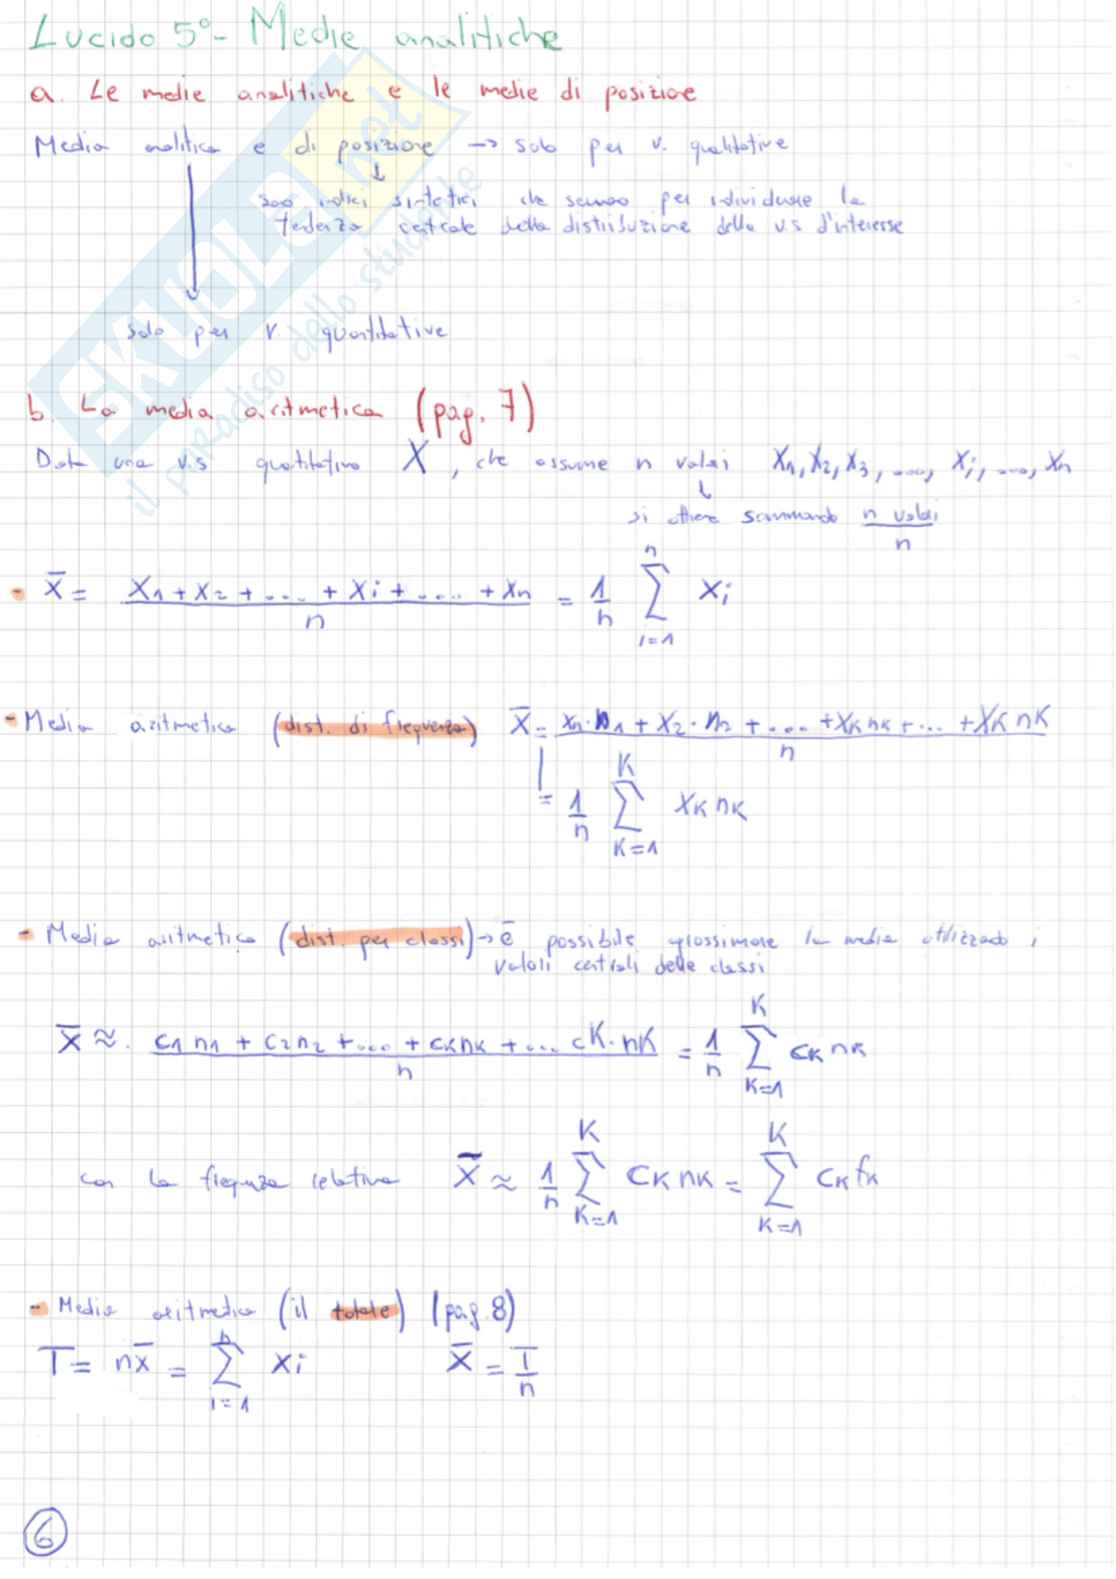 Lucido 5° - Medie analitiche
a. Le medie analitiche e le medie di posizione
Media analitica e di posizione → solo per v. qualitative
↓
sono indici sintetici che servono per individuare la
tendenza centrale della distribuzione della v.s d'interesse
solo per v. quantitative
b. La media aritmetica (pag. 7)
Data una v.s quantitativa X, che assume n valori X1, X2, X3, ...., Xi, ...., Xn
↓
si ottiene sommando n valori / n
- x̄ = (X1 + X2 + .... + Xi + .... + Xn) / n = 1/n ∑_{i=1}^{n} Xi
- Media aritmetica (dist. di frequenza) x̄ = (x1·n1 + x2·n2 + .... + xk nk + ... + xK nK) / n
= 1/n ∑_{K=1}^{K} xK nK
- Media aritmetica (dist. per classi) → è possibile grossimare la media utilizzando i
valori centrali delle classi
x̄ ≈ (c1 n1 + c2 n2 + .... + cK nK + ... cK·nK) / n = 1/n ∑_{K=1}^{K} cK nK
con la frequenza relativa x̄ ≈ 1/n ∑_{K=1}^{K} cK nK = ∑_{K=1}^{K} cK fK
- Media aritmetica (il totale) (pag. 8)
T = n x̄ = ∑_{i=1}^{n} xi x̄ = T/n
6
SKUOLA.net
il paradiso dello studente